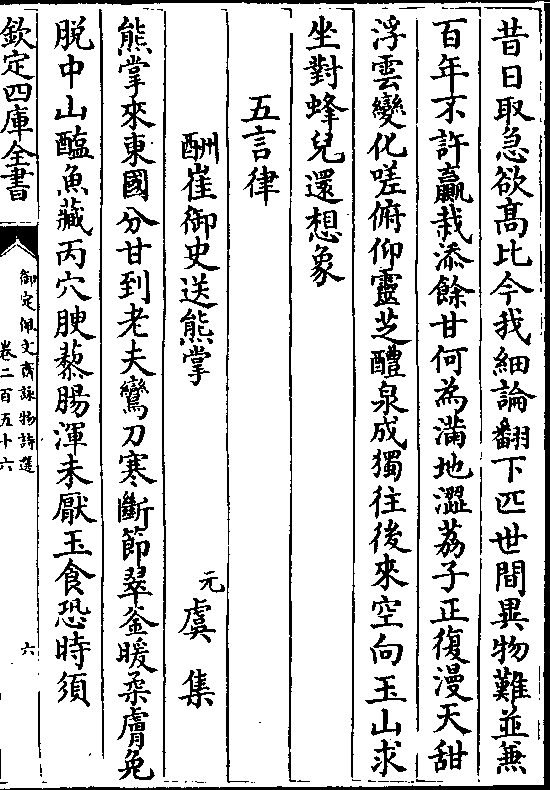 昔日取急欲髙比今我細論翻下匹世間異物難並兼
百年不許贏栽添餘甘何為滿地澀荔子正復漫天甜
浮雲變化嗟俯仰靈芝醴泉成獨往後來空向玉山求
坐對蜂兒還想象
五言律
酬崔御史送熊掌
元虞集
熊掌來東國分甘到老夫鸞刀寒斷節翠釜暖柔膚免
脱中山醢魚藏丙穴腴藜腸渾未厭玉食恐時須
欽定四庫全書
御定佩文齋詠物詩選
卷二百五十六
六